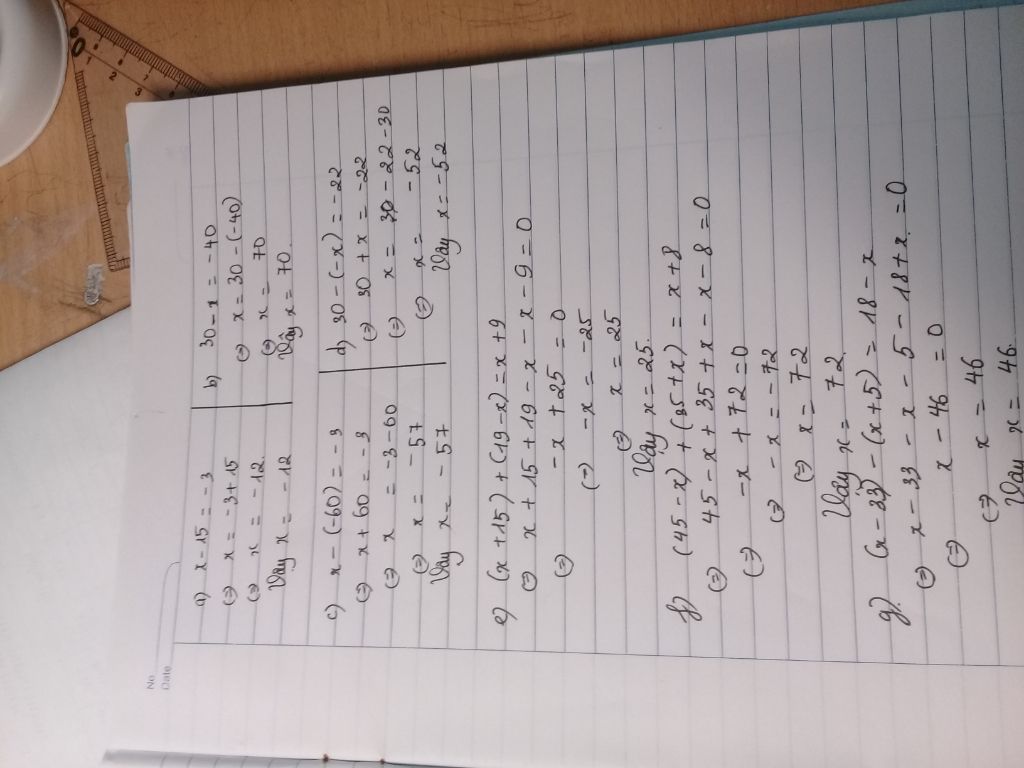 No.
Date
a) x - 15 = -3
(=) x = -3 + 15
(=) x = -12.
Vậy x = -12
b) 30 - x = -40
(=) x = 30 - (-40)
(=) x = 70
Vậy x = 70.
c) x - (-60) = -3
(=) x + 60 = -3
(=) x = -3 - 60
(=) x = -57
Vậy x = -57
d) 30 - (-x) = -22
(=) 30 + x = -22
(=) x = -22 - 30
(=) x = -52
Vậy x = -52
e) (x + 15) + (19 - x) = x + 9
(=) x + 15 + 19 - x - x - 9 = 0
(=) -x + 25 = 0
(=) -x = -25
(=) x = 25
Vậy x = 25.
f) (45 - x) + (35 + x) = x + 8
(=) 45 - x + 35 + x - x - 8 = 0
(=) -x + 72 = 0
(=) -x = -72
(=) x = 72
Vậy x = 72.
g) (x - 33) - (x + 5) = 18 - x
(=) x - 33 - x - 5 - 18 + x = 0
(=) x - 46 = 0
(=) x = 46
Vậy x = 46.